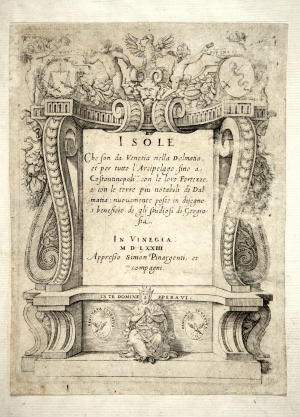 ISOLE
Che son da Venetia nella Dalmatia,
et per tutto l'Arcipelago, fino a
Costantinopoli, con le loro Fortezze,
e con le terre più notabili di Dal
matia: nuovamente poste in disegno
à beneficio de gli studiosi di Geogra
fia.
IN VINEGIA
M D LXXIIII
Appresso Simon Pinargenti, et
compagni.
IN TE DOMINE SPERAVI